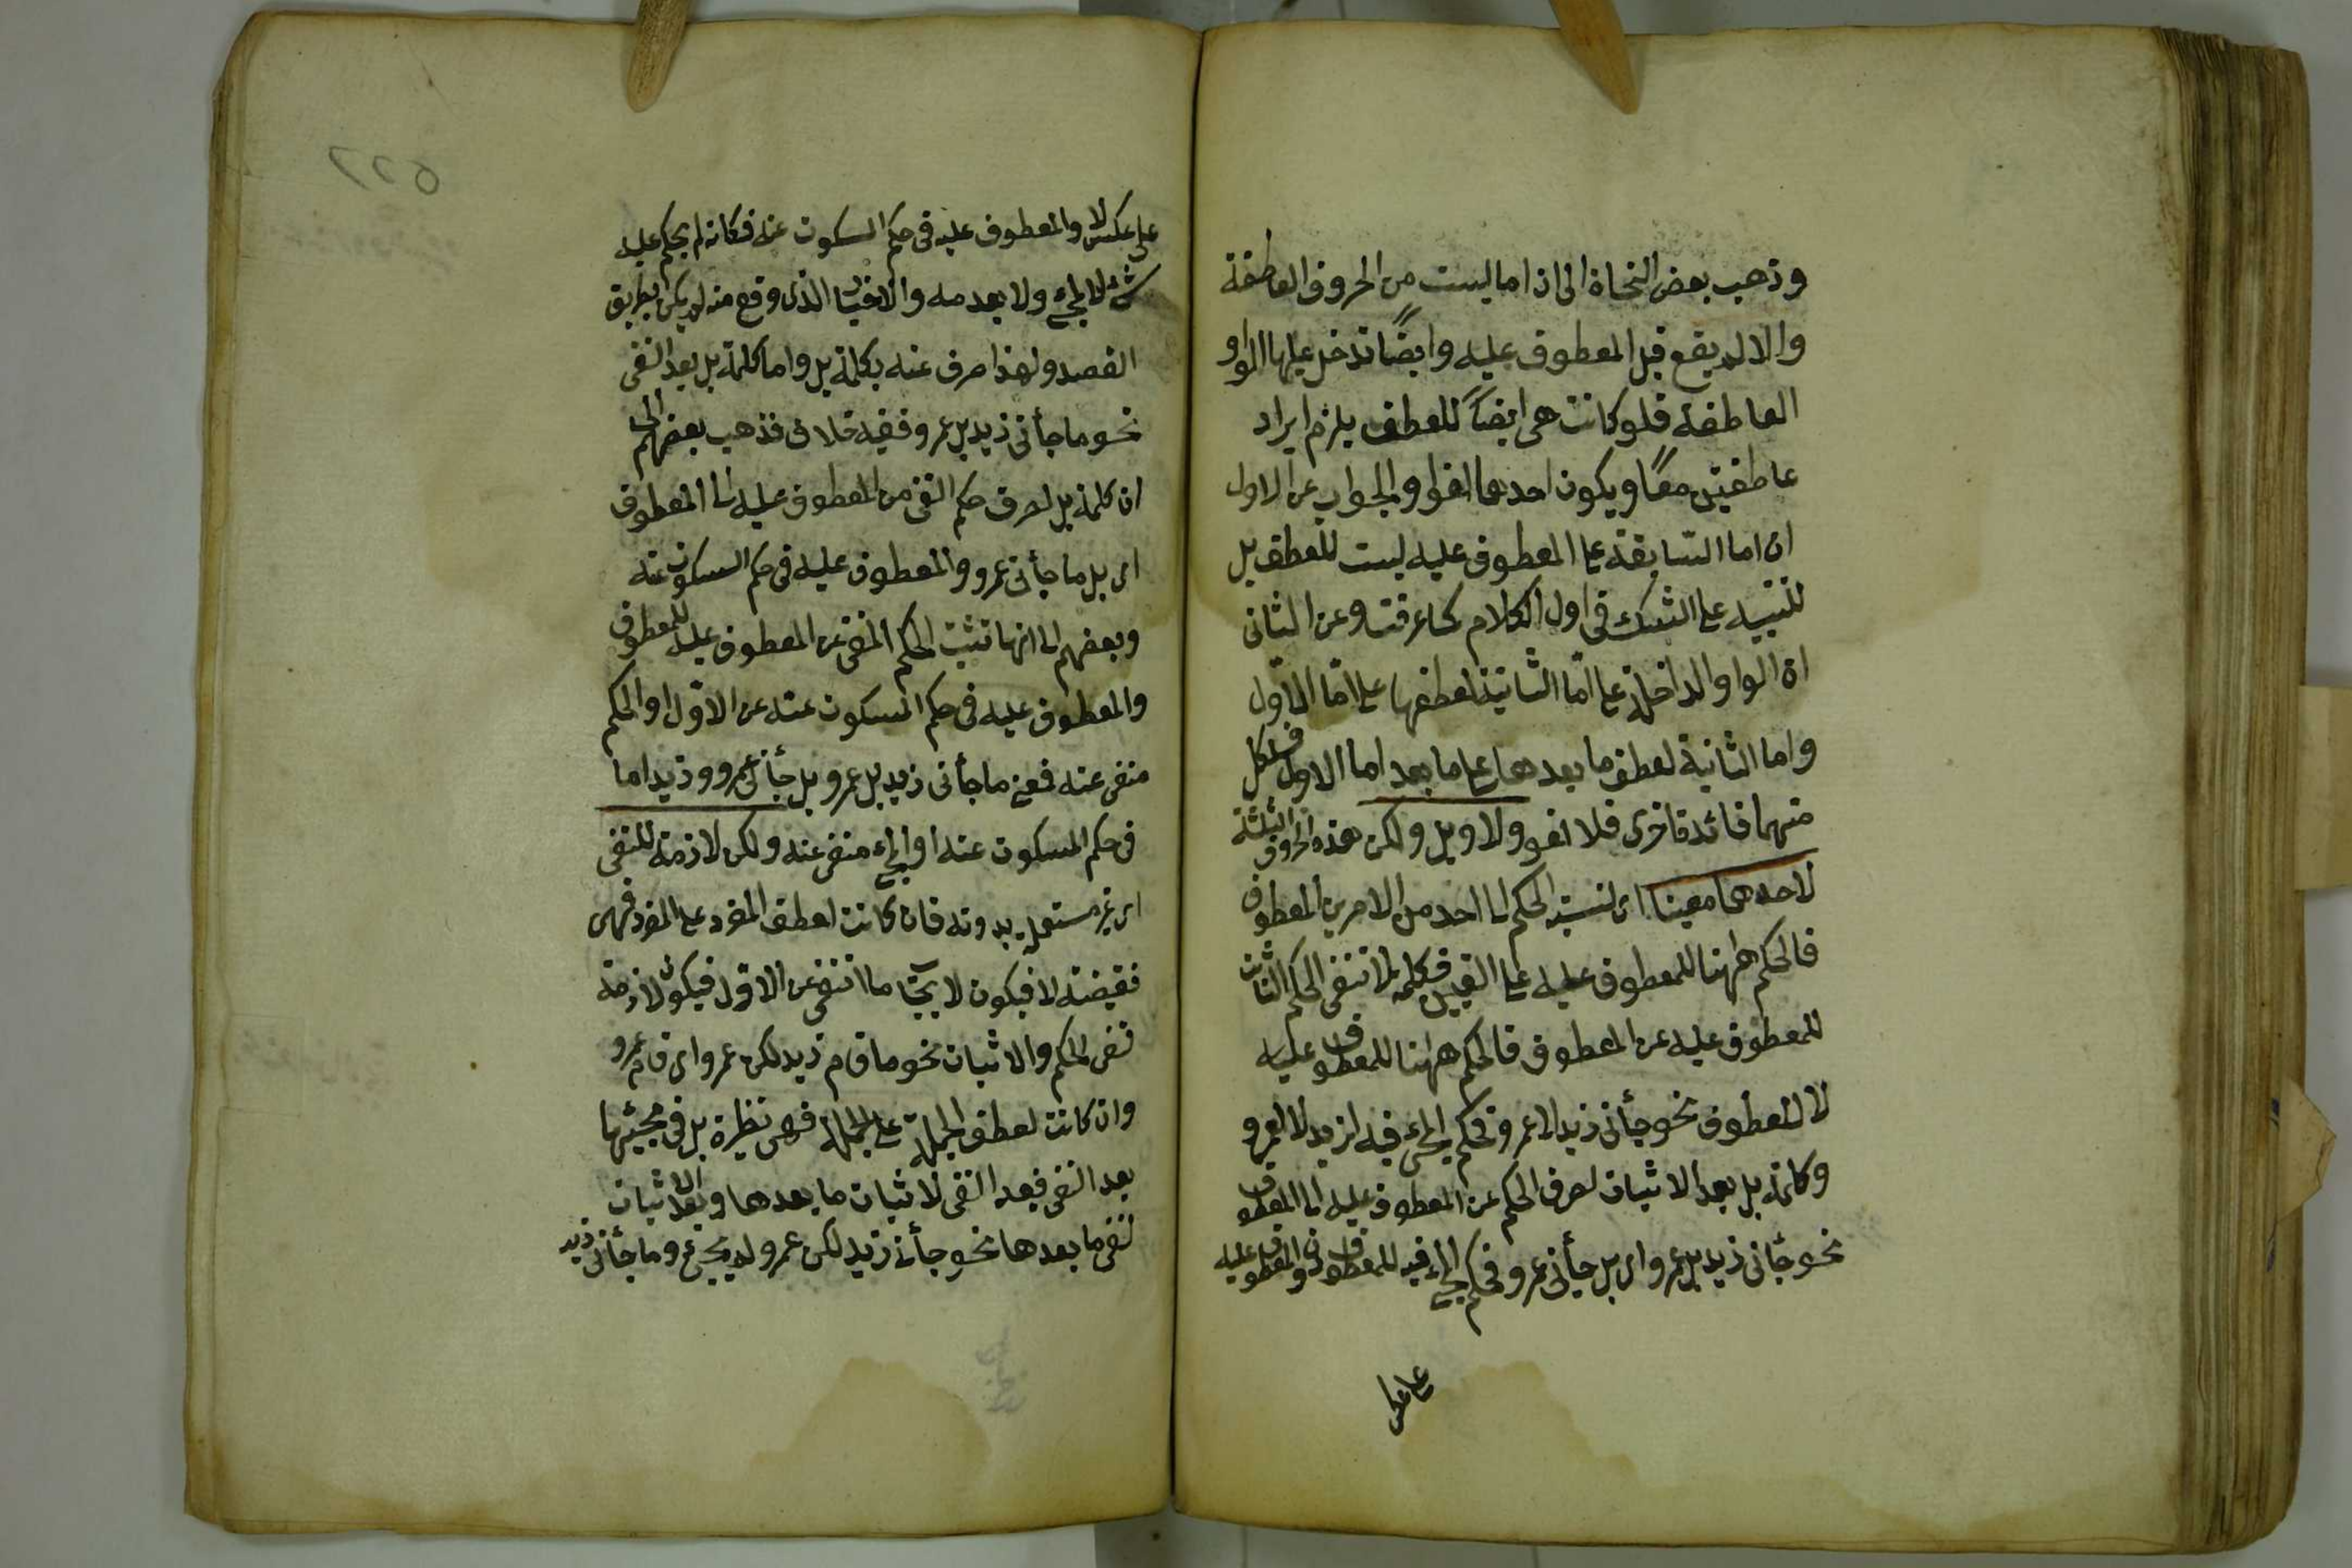 وذهب بعض النحاة الى ان اما ليست من الحروف العاطفة
والا لم يقع قبل المعطوف عليه وايضًا تدخل عليها الواو
العاطفة فلو كانت هى ايضًا للعطف يلزم ايراد
عاطفتين معًا ويكون احدهما لغوا والجواب عن الاول
ان اما السابقة على المعطوف عليه ليست للعطف بل
للتنبيه على الشك فى اول الكلام كما عرفت وعن الثانى
ان الواو الداخلة على امّا الثانية لعطفها على امّا الاول
واما الثانية لعطف ما بعدها على ما بعد اما الاول فلكل
منهما فائدة اخرى فلا لغو ولا وبل ولكن هذه الحروف الثلثة
لاحدهما معينا اى لنسبة الحكم الى احد من الامرين المعطوف
فالحكم ههنا للمعطوف عليه على التعيين فكلمة لا تنفى الحكم الثابت
للمعطوف عليه عن المعطوف فالحكم ههنا للمعطوف عليه
لا للمعطوف نحو جأنى زيد لا عمرو فحكم المجئ فيه لزيد لا لعمرو
وكلمة بل بعد الاثبات لصرف الحكم عن المعطوف عليه الى المعطوف
نحو جأنى زيد بل عمرو اى بل جأنى عمرو فحكم المجئ فيه للمعطوف دون المعطوف عليه
على عكس لا والمعطوف عليه فى حكم السكوت عنه فكانه لم يحكم عليه
شئ لا بالمجئ ولا بعدمه والاخبار الذى وقع منه لم يكن بطريق
القصد ولهذا صرف عنه بكلمة بل واما كلمة بل بعد النفى
نحو ما جأنى زيد بل عمرو ففيه خلاف فذهب بعضهم الى
ان كلمة بل لصرف حكم النفى من المعطوف عليه الى المعطوف
اى بل ما جأنى عمرو والمعطوف عليه فى حكم السكوت عنه
وبعضهم الى انها تثبت الحكم المنفى عن المعطوف عليه للمعطوف
والمعطوف عليه فى حكم المسكوت عنه عن الاوّل او الحكم
منفى عنه فمعنى ما جأنى زيد بل عمرو بل جأنى عمرو وزيد اما
فى حكم المسكوت عنه او المجئ منفى عنه ولكن لازمة للنفى
اى غير مستعملة بدونه فان كانت لعطف المفرد على المفرد فهى
نقيضة لا فيكون لايجاب ما انتفى عن الاوّل فيكون لازمة
نفى الحكم والاثبات نحو ما قام زيد لكن عمرو اى قام عمرو
وان كانت لعطف الجملة على الجملة فهى نظيرة بل فى مجيئها
بعد النفى فبعد النفى لاثبات ما بعدها وبعد الاثبات
لنفى ما بعدها نحو جأنى زيد لكن عمرو لم يجئ وما جأنى زيد